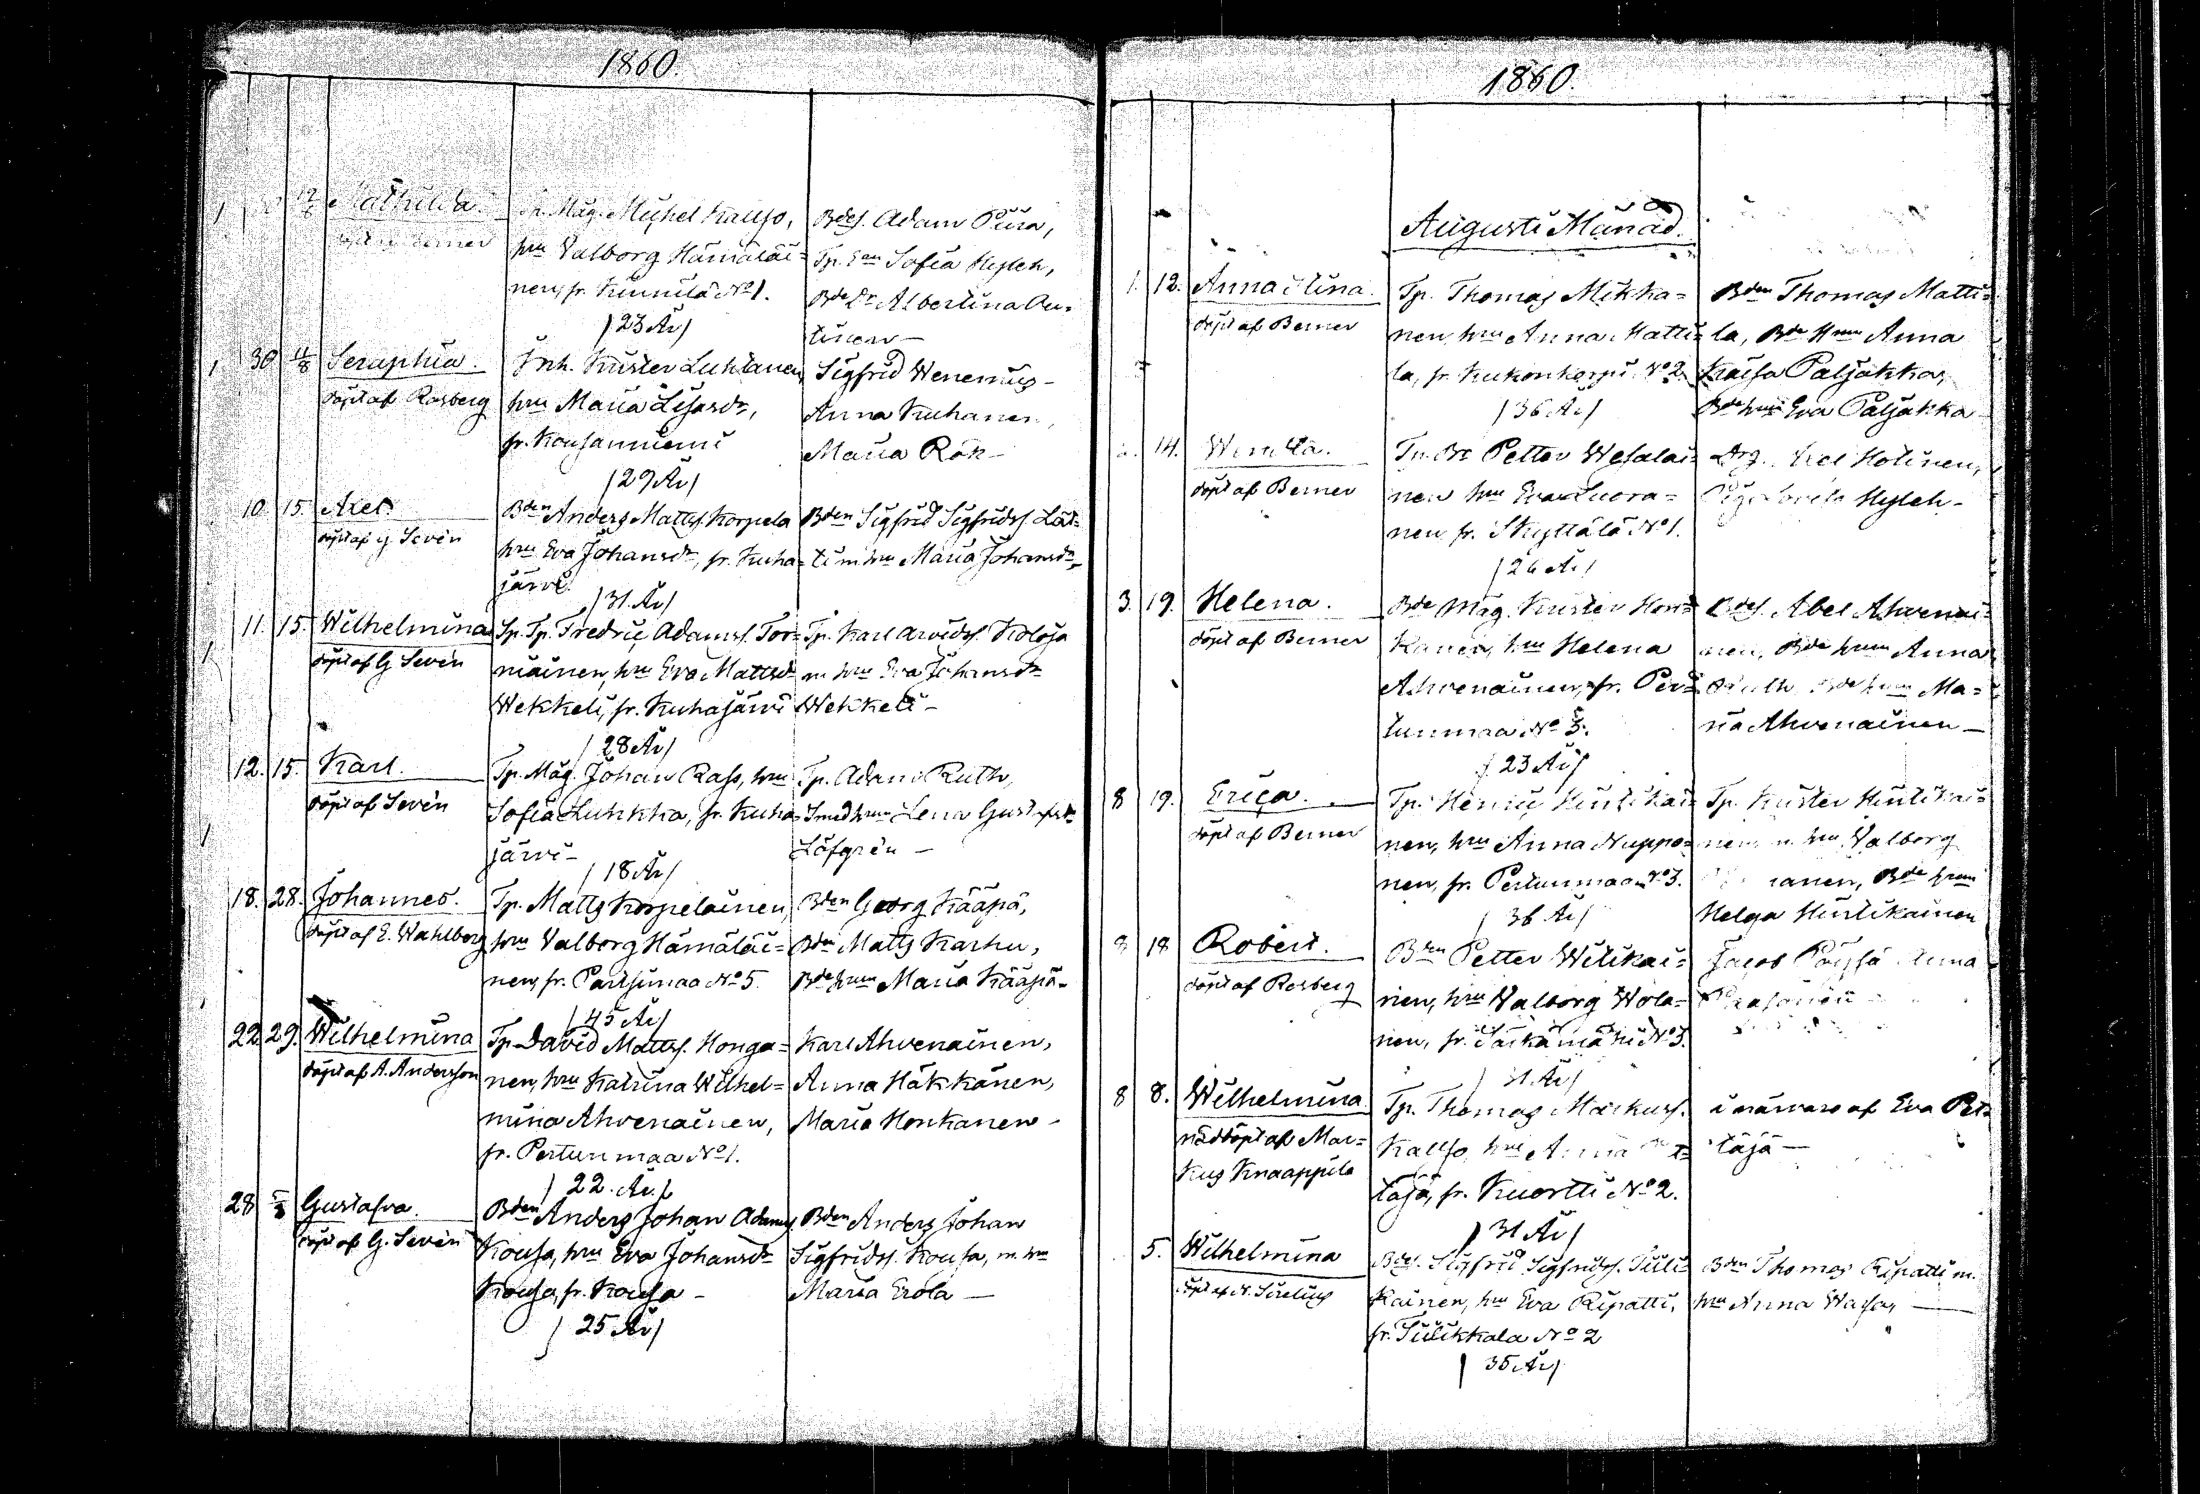 1860.
Mathilda.
Mag. Michel Kallso,
hru Valborg Hämäläi=
nen, fr. Kinnilä No 1.
/ 23 År /
Bdes. Adam Pura,
Sofia Hyleh,
Albertina
1 30 11/8 Seraphia.
döpt af Rosberg
Inh. Krister Luhtanen,
hru Maria
fr. Kousanniemi
/ 29 År /
Sigfrid Wenenius
Anna Kuhanen,
Maria Rök –
10. 15. Axel.
döpt af G Sevén
Bden Anders Matts. Korpela
hru Eva Johansdr, fr. Kuha=
järvi.
/ 31. År /
Bden Sigfrid Sigfridss. Lät=
ti m hru Maria Johansdr,
11. 15. Wilhelmina
döpt af G Sevén
Sp. Tp. Fredric Adamss. Tor=
niainen, hru Eva Mattsdr
Wekkeli, fr. Kuhajärvi
/ 28 År /
Tp. Karl Arvidss. Koloja
m hru Eva Johansdr
Wekkeli –
12. 15. Karl.
döpt af Sevén
Tp. Mag. Johan Rass, hru
Sofia Luhkka, fr. Kuha=
järvi –
/ 18 År /
Tp. Adam Ruth,
Smed hru Lena Gustafsdr
Löfgrén –
18. 28. Johannes.
döpt af E. Wahlberg
Tp. Matts Korpelainen,
hru Valborg Hämäläi=
nen, fr. Partsimaa No 5.
/ 45 År /
Bden Georg Kääpä,
Bden Matts Karhu,
Bde hru Maria Kääpä –
22. 29. Wilhelmina
döpt af A. Andersson
Tp David Matts. Honga=
nen, hru Katrina Wilhel=
mina Ahvenainen,
fr. Pertunmaa No 1.
/ 22. År. /
Karl Ahvenainen,
Anna Häkkänen,
Maria Honkanen –
28 Gustafva.
döpt af G. Sevén
Bden Anders Johan Adamss.
Kousa, hru Eva Johansdr
Kousa, fr. Kousa –
/ 25 År /
Bden Anders Johan
Sigfridss. Kousa, m hru
Maria Erola –
1860.
Augusti Månad.
1. 12. Anna Stina.
döpt af Berner
Tp. Thomas Mikka=
nen, hru Anna Matti=
la, fr. Kukonkorpi No 2.
/ 36 År /
Bden Thomas Matti=
la, Bde hru Anna
Kaisa Paljakka,
Bde hru Eva Paljakka
14.
döpt af Berner
Petter Wesalai=
nen hru Eva Luora=
nen fr. Skyttälä No 1.
/ 26 År /
Hotinen,
Hyleh –
3. 19. Helena.
döpt af Berner
Bde Mag. Krister Hon=
kanen, hru Helena
Ahvenainen, fr. Per=
tunmaa No 3.
/ 23 År /
Bdes. Abel Ahvenai=
nen, Bde hru Anna
Bde hru Ma=
ria Ahvenainen –
8 19. Erica.
döpt af Berner
Tp. Henric Hintikai=
nen, hru Anna Nuppo=
nen, fr. Pertunmaa No 3.
/ 36 År /
Tp. Krister Hintikai=
nen m. hru Valborg
Bde hru
Helga Hintikainen
8 18 Robert.
döpt af Rosberg
Bden Petter Wilikai=
nen, hru Valborg Wola=
nen, fr. Särkämäki No 3.
/ 31. År /
Jacob Anna
8 8. Wilhelmina
nöddöpt af Mar=
kus Knaappila
Tp. Thomas Markuss.
Kallso, hru Anna
täjä, fr. Kuortti No 2.
/ 31 År /
i närvaro af Eva Pet=
täjä –
5. Wilhelmina
döpt af Sirelius
Bdes. Sigfrid Sigfridss. Tuli=
kainen, hru Eva Ripatti,
fr. Tulikkala No 2
/ 35 År /
Bden Thomas Ripatti m.
hru Anna –